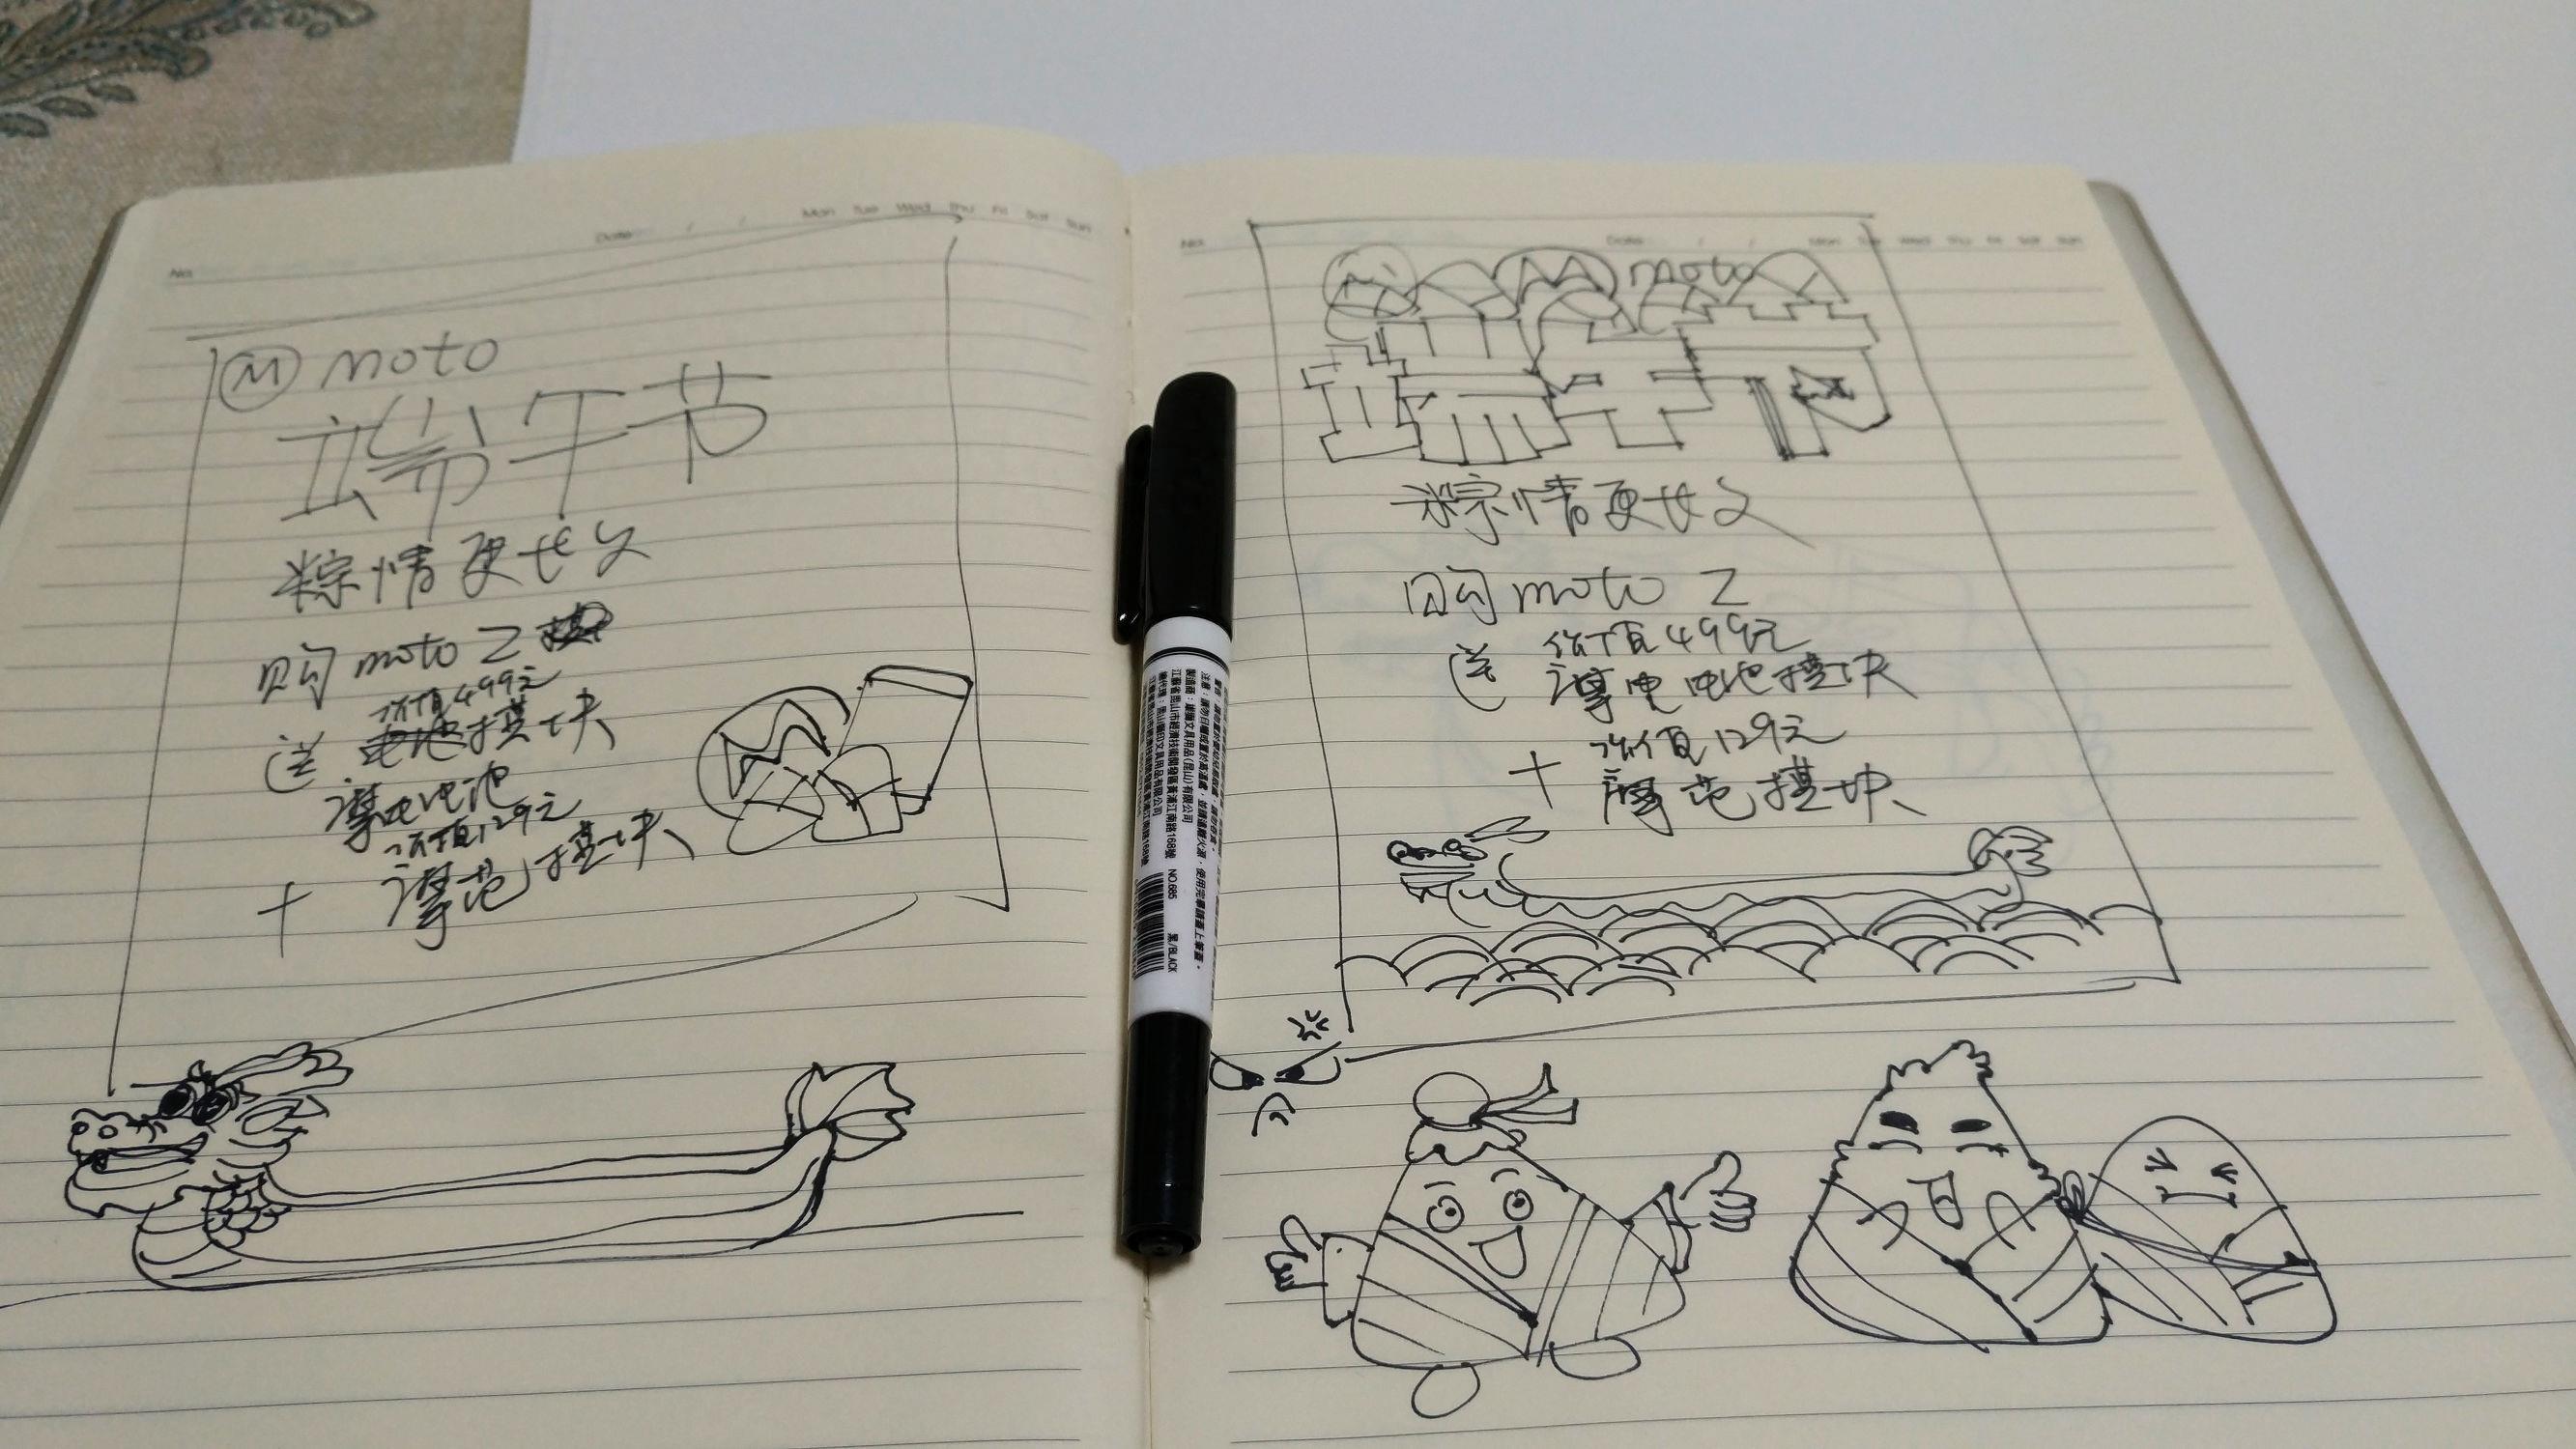 No.
Date / /
Mon Tue Wed Thu Fri Sat Sun
M moto
端午节
粽情更长久
购 moto Z
价值499元
送 电池模块
摩电电池
价值129元
+ 摩范模块
No.
Date / /
Mon Tue Wed Thu Fri Sat Sun
M moto
端午节
粽情更长久
购 moto Z
价值499元
送 摩电电池模块
价值129元
+ 摩范模块
製造商：雄獅文具用品(昆山)有限公司
NO.685
黑/BLACK